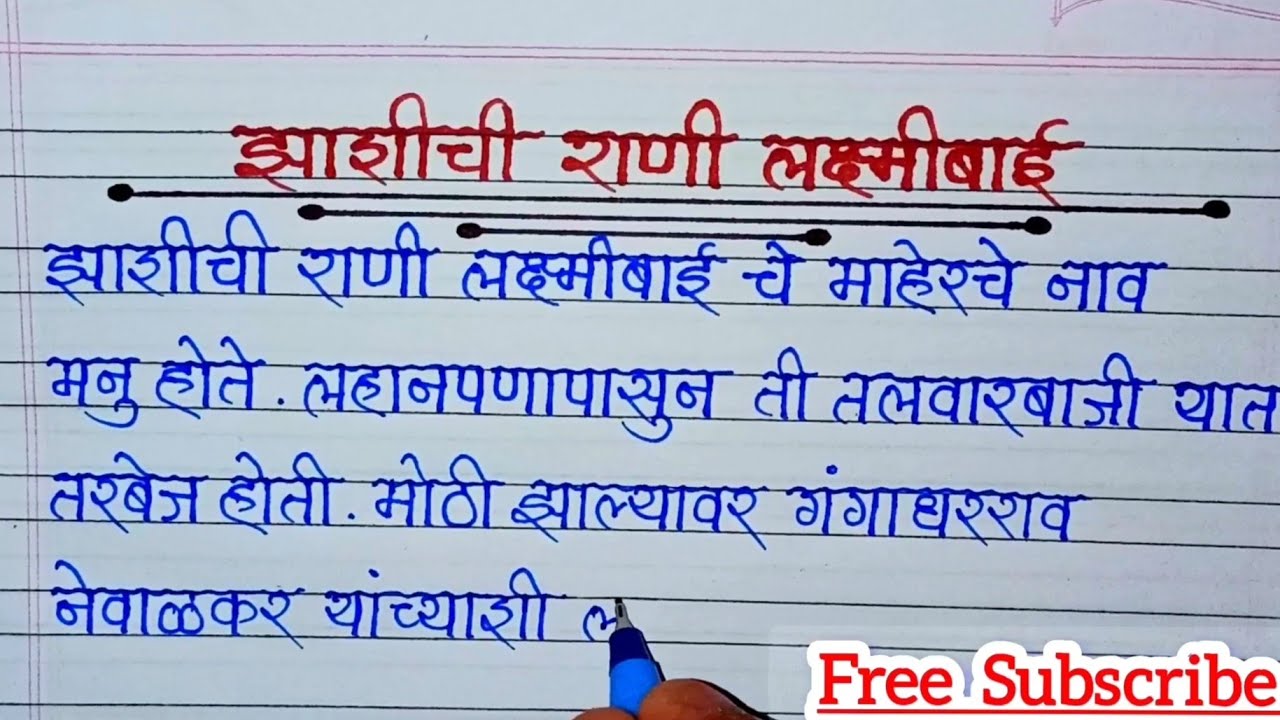 झाशीची राणी लक्ष्मीबाई
झाशीची राणी लक्ष्मीबाई चे माहेरचे नाव
मनु होते. लहानपणापासुन ती तलवारबाजी यात
तरबेज होती. मोठी झाल्यावर गंगाधरराव
नेवाळकर यांच्याशी
Free Subscribe